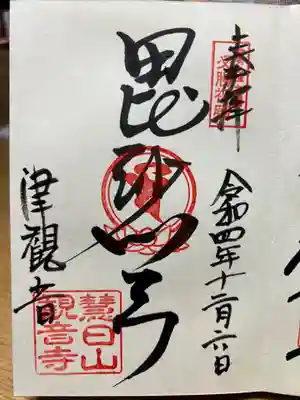 奉拝
令和四年十二月六日
毘沙門天
津観音
慧日山
観音寺